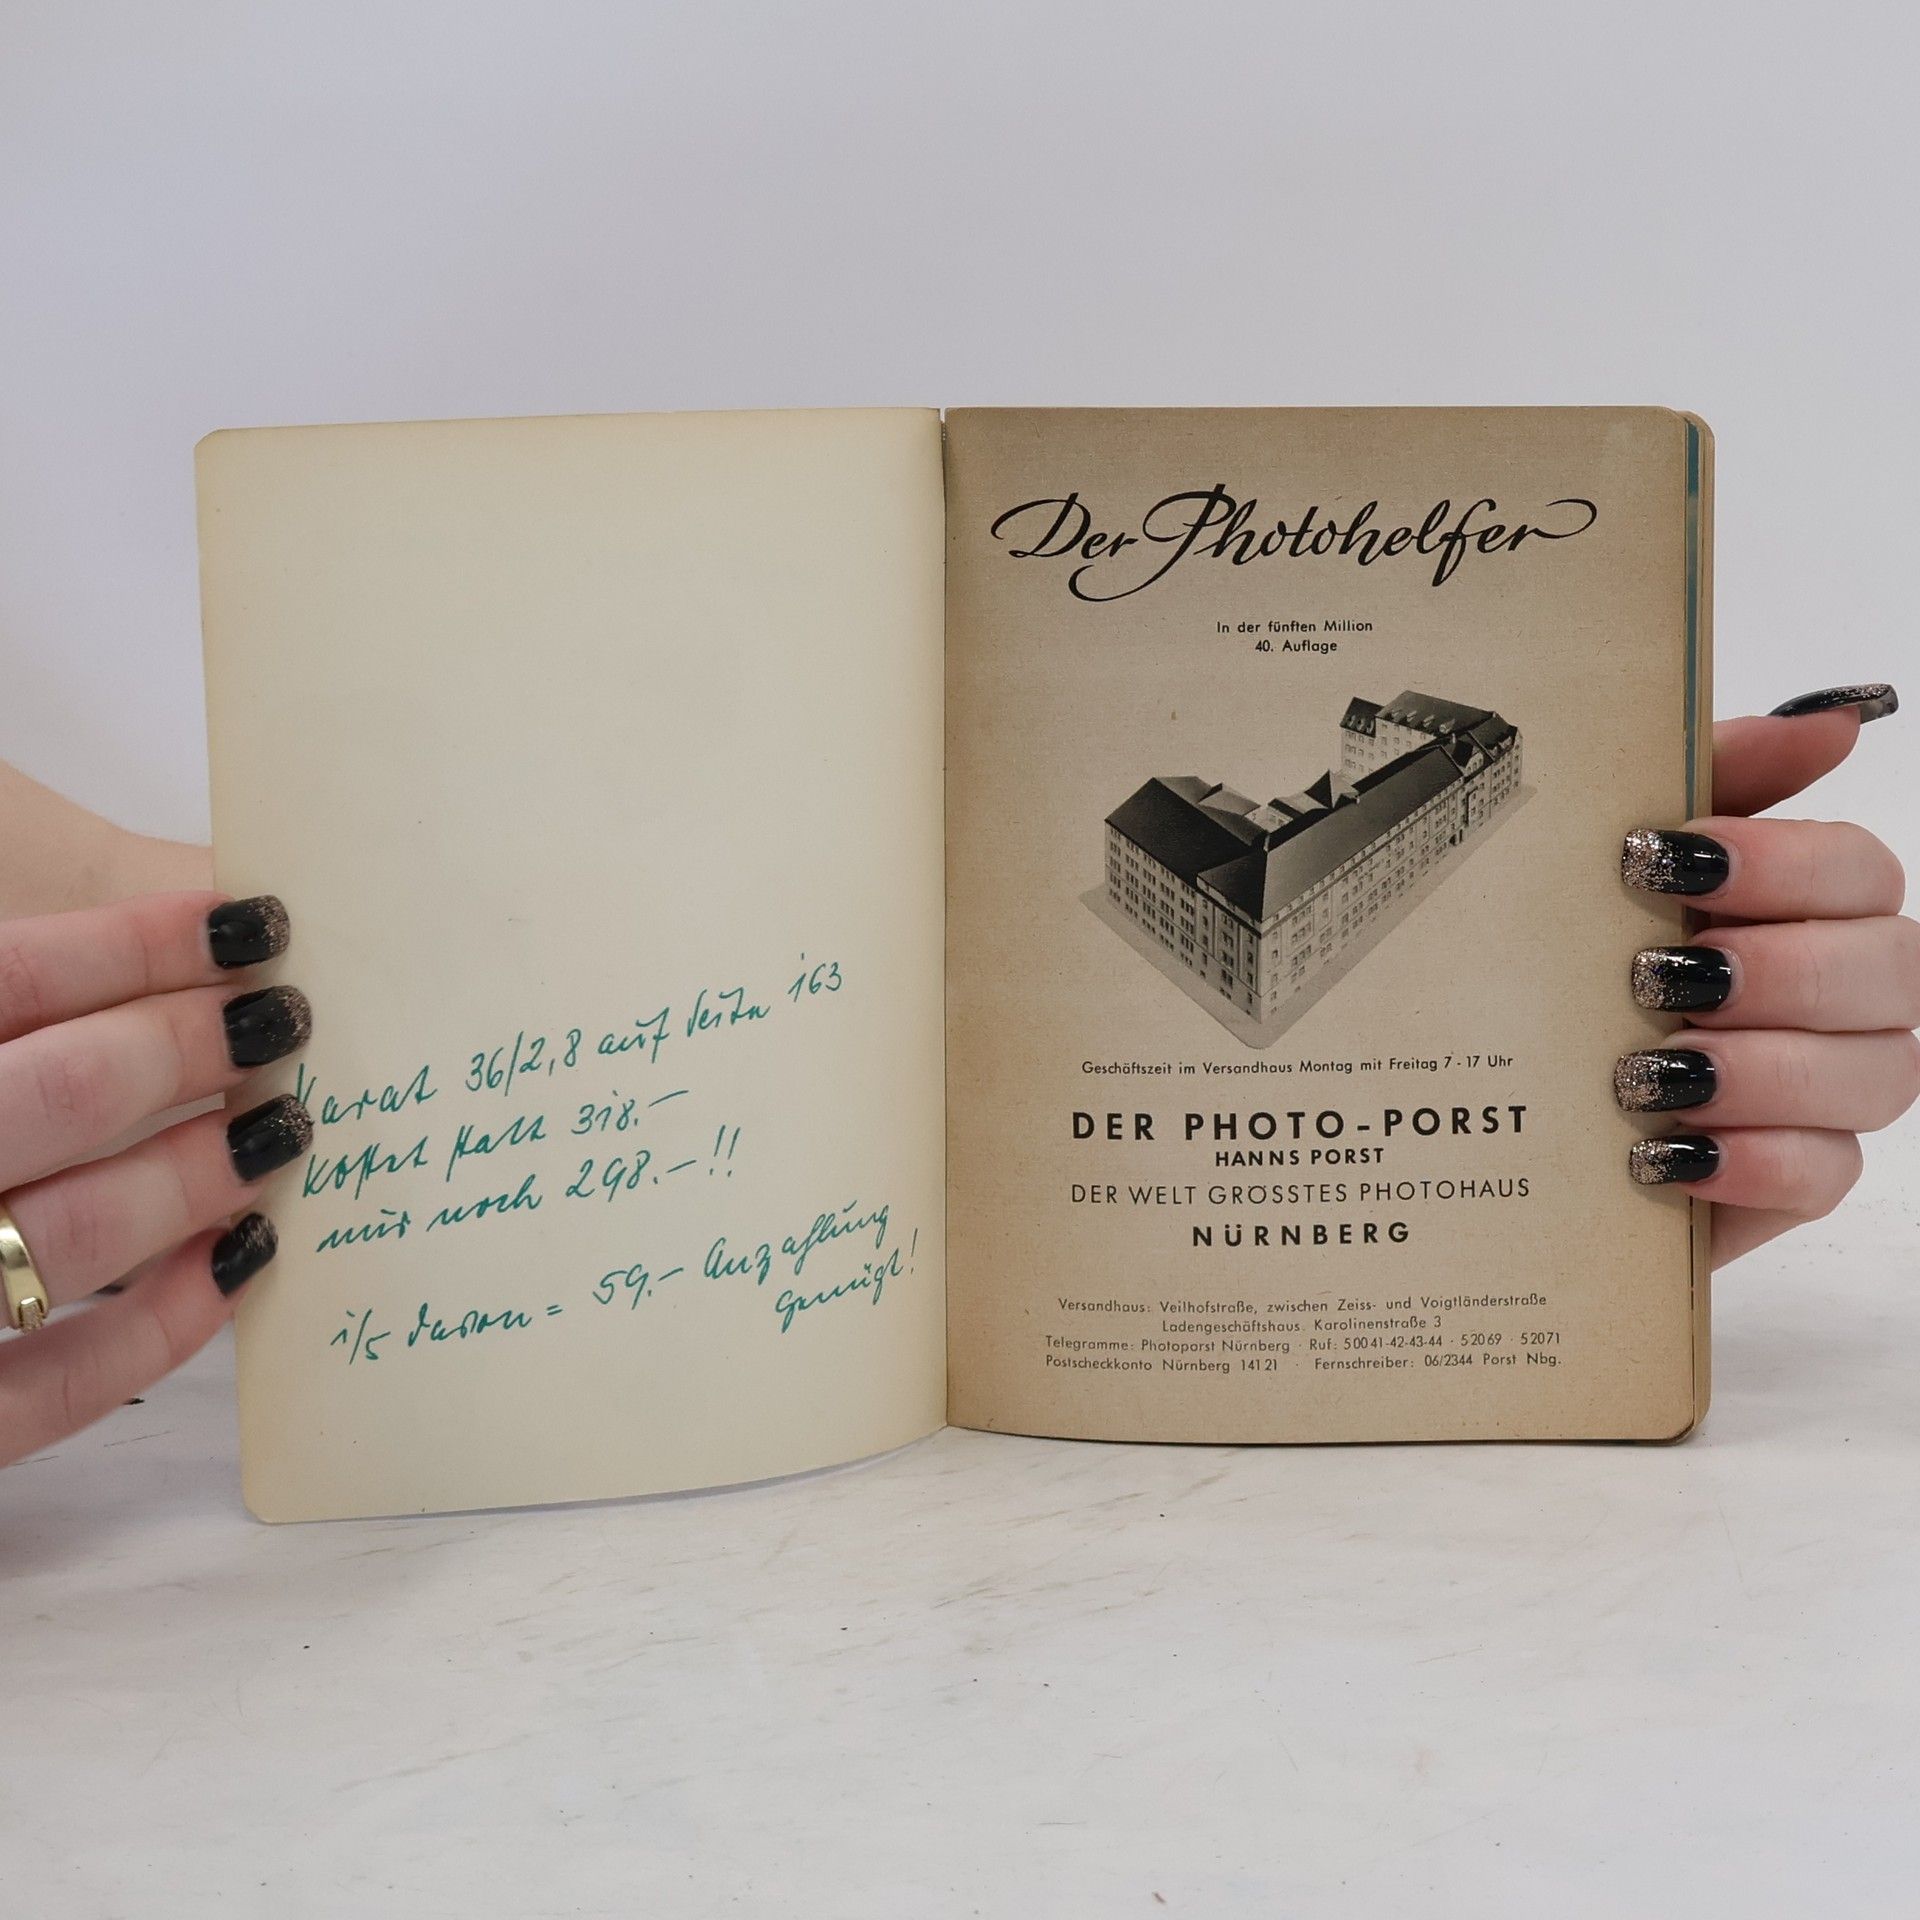 Karat 36/2,8 auf Seite 163
kostet statt 318.–
nur noch 298.–!!
1/5 davon = 59.– Anzahlung
genügt!
Der Photohelfer
In der fünften Million
40. Auflage
Geschäftszeit im Versandhaus Montag mit Freitag 7 - 17 Uhr
DER PHOTO-PORST
HANNS PORST
DER WELT GRÖSSTES PHOTOHAUS
NÜRNBERG
Versandhaus: Veilhofstraße, zwischen Zeiss- und Voigtländerstraße
Ladengeschäftshaus. Karolinenstraße 3
Telegramme: Photoporst Nürnberg · Ruf: 50041-42-43-44 · 52069 · 52071
Postscheckkonto Nürnberg 14121 · Fernschreiber: 06/2344 Porst Nbg.